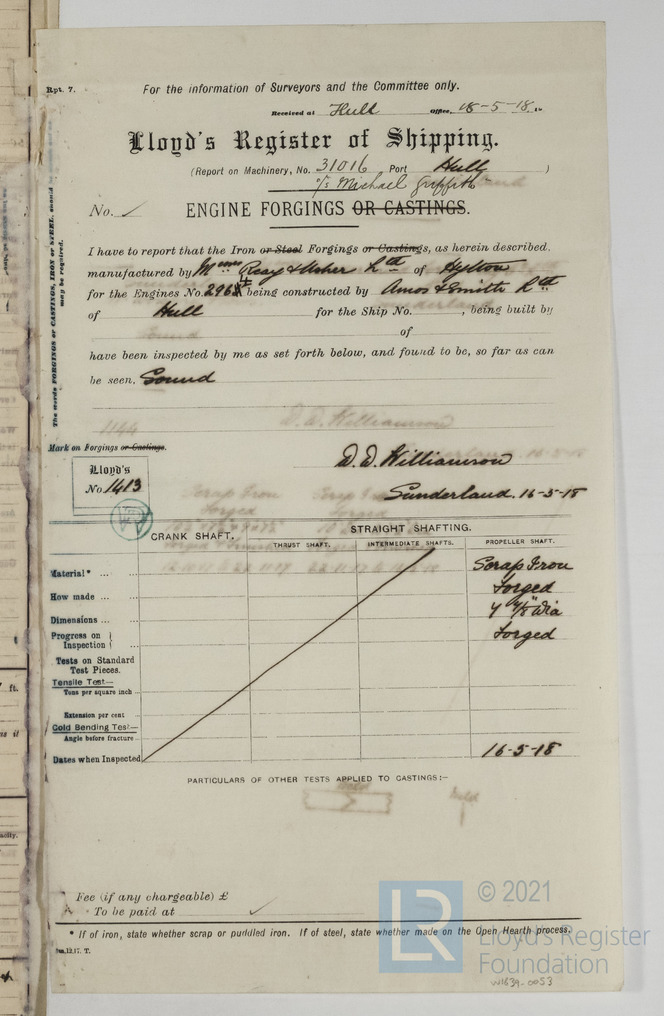 Rpt. 7.
For the information of Surveyors and the Committee only.
Received at Hull Office, 18-5-18. 19
Lloyd's Register of Shipping.
(Report on Machinery, No. 31016 Port Hull )
S/S Michael Griffith
No. ✓ ENGINE FORGINGS OR CASTINGS.
I have to report that the Iron or Steel Forgings or Castings, as herein described.
manufactured by Messrs Reay & Usher Ltd of Hylton
for the Engines No. 2964 being constructed by Amos & Smith Ltd
of Hull for the Ship No. , being built by
of
have been inspected by me as set forth below, and found to be, so far as can
be seen, Sound
The words FORGINGS or CASTINGS, IRON or STEEL, should
may be required.
Mark on Forgings or Castings.
D. D. Williamson
Lloyd's
No 1413
Sunderland. 16-5-18
CRANK SHAFT.
STRAIGHT SHAFTING.
THRUST SHAFT. INTERMEDIATE SHAFTS. PROPELLER SHAFT.
Material* ... ... Scrap Iron
How made ... ... Forged
Dimensions ... ... Dia
Progress on Inspection Forged
Tests on Standard
Test Pieces.
Tensile Test—
Tons per square inch
Extension per cent
Cold Bending Test—
Angle before fracture
Dates when Inspected 16-5-18
PARTICULARS OF OTHER TESTS APPLIED TO CASTINGS:—
Fee (if any chargeable) £
To be paid at ✓
* If of iron, state whether scrap or puddled iron. If of steel, state whether made on the Open Hearth process.
12.17. T.
LR © 2021
Lloyd's Register
Foundation
W1639-0053